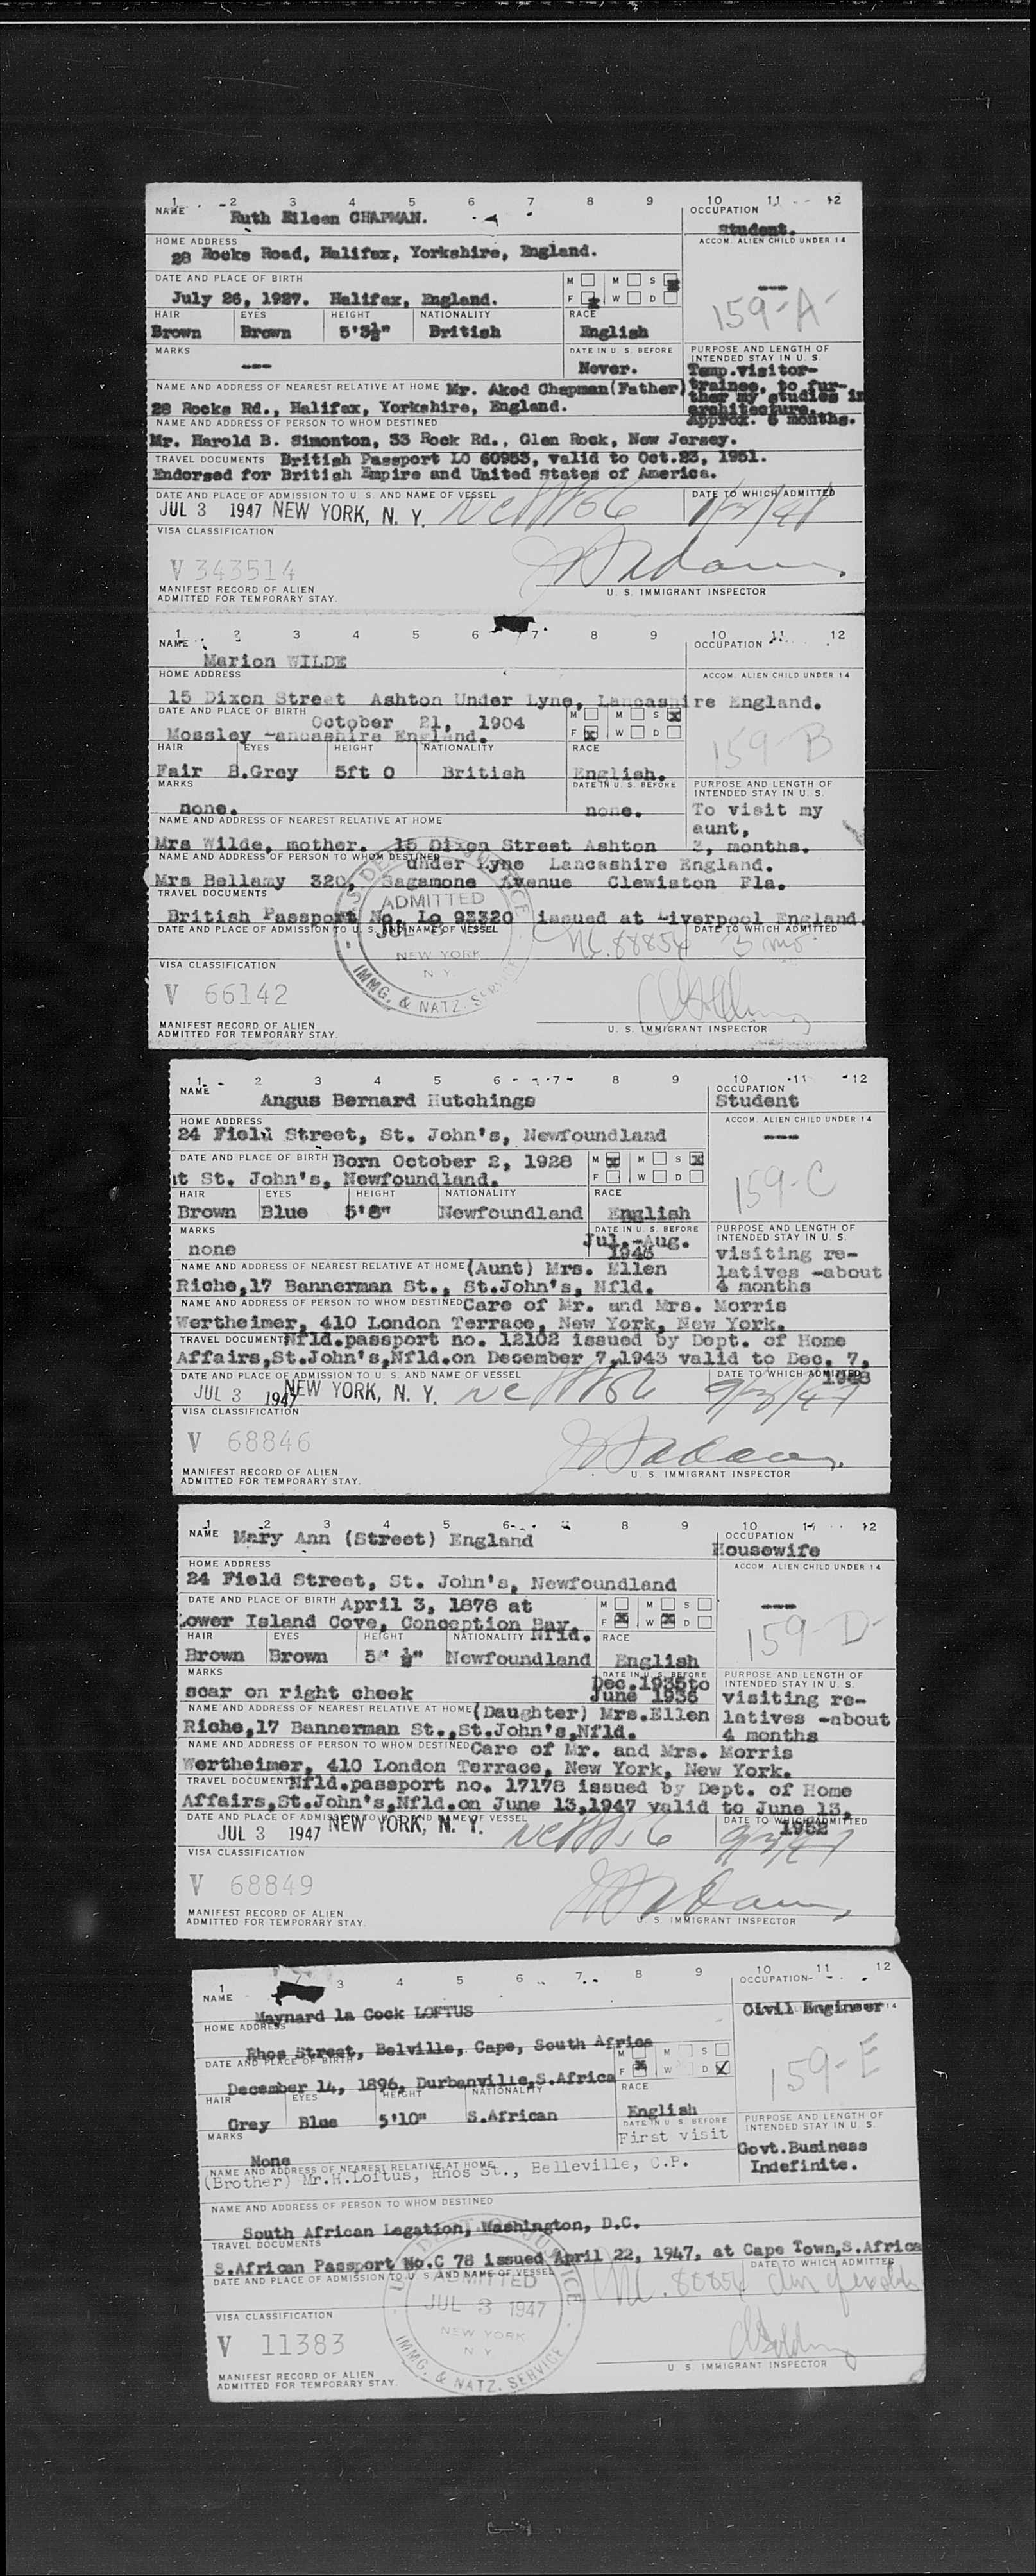 1 2 3 4 5 6 7 8 9 10 11 12
NAME Ruth Eileen CHAPMAN.
OCCUPATION
Student.
HOME ADDRESS
28 Rocks Road, Halifax, Yorkshire, England.
ACCOM. ALIEN CHILD UNDER 14
---
DATE AND PLACE OF BIRTH M M S
July 26, 1927. Halifax, England. F W D
159-A
HAIR EYES HEIGHT NATIONALITY RACE
Brown Brown 5'3½" British English
MARKS DATE IN U. S. BEFORE PURPOSE AND LENGTH OF INTENDED STAY IN U. S.
--- Never. Temp.visitor-
trainee, to fur-
ther my studies in
architecture.
Approx. 6 months.
NAME AND ADDRESS OF NEAREST RELATIVE AT HOME Mr. Aked Chapman(Father)
28 Rocks Rd., Halifax, Yorkshire, England.
NAME AND ADDRESS OF PERSON TO WHOM DESTINED
Mr. Harold B. Simonton, 33 Rock Rd., Glen Rock, New Jersey.
TRAVEL DOCUMENTS British Passport LO 60953, valid to Oct.23, 1951.
Endorsed for British Empire and United States of America.
DATE AND PLACE OF ADMISSION TO U. S. AND NAME OF VESSEL DATE TO WHICH ADMITTED
JUL 3 1947 NEW YORK, N. Y.
VISA CLASSIFICATION
V 343514
MANIFEST RECORD OF ALIEN
ADMITTED FOR TEMPORARY STAY.
U. S. IMMIGRANT INSPECTOR
1 2 3 4 5 6 7 8 9 10 11 12
NAME OCCUPATION
Marion WILDE
HOME ADDRESS ACCOM. ALIEN CHILD UNDER 14
15 Dixon Street Ashton Under Lyne, Lancashire England.
DATE AND PLACE OF BIRTH M M S
October 21, 1904 F W D
Mossley -ancashire England.
159-B
HAIR EYES HEIGHT NATIONALITY RACE
Fair B.Grey 5ft 0 British English.
MARKS DATE IN U. S. BEFORE PURPOSE AND LENGTH OF INTENDED STAY IN U. S.
none. none. To visit my
aunt,
3, months.
NAME AND ADDRESS OF NEAREST RELATIVE AT HOME
Mrs Wilde, mother. 15 Dixon Street Ashton
NAME AND ADDRESS OF PERSON TO WHOM DESTINED under Lyne Lancashire England.
Mrs Bellamy 320, Sagamone Avenue Clewiston Fla.
TRAVEL DOCUMENTS
British Passport No. Lo 92320 issued at -iverpool England.
DATE AND PLACE OF ADMISSION TO U. S. AND NAME OF VESSEL DATE TO WHICH ADMITTED
ADMITTED JUL 3 NEW YORK N. Y. IMMG. & NATZ. SERVICE
88854 3 mo.
VISA CLASSIFICATION
V 66142
MANIFEST RECORD OF ALIEN
ADMITTED FOR TEMPORARY STAY.
U. S. IMMIGRANT INSPECTOR
1 2 3 4 5 6 7 8 9 10 11 12
NAME Angus Bernard Hutchings
OCCUPATION
Student
HOME ADDRESS ACCOM. ALIEN CHILD UNDER 14
24 Field Street, St. John's, Newfoundland ---
DATE AND PLACE OF BIRTH Born October 2, 1928 M M S
at St. John's, Newfoundland. F W D
159-C
HAIR EYES HEIGHT NATIONALITY RACE
Brown Blue 5'8" Newfoundland English
MARKS DATE IN U. S. BEFORE PURPOSE AND LENGTH OF INTENDED STAY IN U. S.
none Jul.-Aug.
visiting re-
latives -about
4 months
NAME AND ADDRESS OF NEAREST RELATIVE AT HOME (Aunt) Mrs. Ellen
Riche,17 Bannerman St., St.John's, Nfld.
NAME AND ADDRESS OF PERSON TO WHOM DESTINED Care of Mr. and Mrs. Morris
Wertheimer, 410 London Terrace, New York, New York.
TRAVEL DOCUMENTS Nfld.passport no. 12102 issued by Dept. of Home
Affairs,St.John's,Nfld.on December 7,1943 valid to Dec. 7,
1948
DATE AND PLACE OF ADMISSION TO U. S. AND NAME OF VESSEL DATE TO WHICH ADMITTED
JUL 3 1947 NEW YORK, N. Y. 9/2/47
VISA CLASSIFICATION
V 68846
MANIFEST RECORD OF ALIEN
ADMITTED FOR TEMPORARY STAY.
U. S. IMMIGRANT INSPECTOR
1 2 3 4 5 6 7 8 9 10 11 12
NAME Mary Ann (Street) England
OCCUPATION
Housewife
HOME ADDRESS ACCOM. ALIEN CHILD UNDER 14
24 Field Street, St. John's, Newfoundland ---
DATE AND PLACE OF BIRTH April 3, 1878 at M M S
Lower Island Cove, Conception Bay, Nfld. F W D
159-D
HAIR EYES HEIGHT NATIONALITY RACE
Brown Brown 5" ½" Newfoundland English
MARKS DATE IN U. S. BEFORE PURPOSE AND LENGTH OF INTENDED STAY IN U. S.
scar on right cheek Dec.1935to
June 1936
visiting re-
latives -about
4 months
NAME AND ADDRESS OF NEAREST RELATIVE AT HOME (Daughter) Mrs.Ellen
Riche,17 Bannerman St.,St.John's,Nfld.
NAME AND ADDRESS OF PERSON TO WHOM DESTINED Care of Mr. and Mrs. Morris
Wertheimer, 410 London Terrace, New York, New York.
TRAVEL DOCUMENTS Nfld.passport no. 17178 issued by Dept. of Home
Affairs,St.John's,Nfld.on June 13,1947 valid to June 13,
1952
DATE AND PLACE OF ADMISSION TO U. S. AND NAME OF VESSEL DATE TO WHICH ADMITTED
JUL 3 1947 NEW YORK, N. Y. 9/2/47
VISA CLASSIFICATION
V 68849
MANIFEST RECORD OF ALIEN
ADMITTED FOR TEMPORARY STAY.
U. S. IMMIGRANT INSPECTOR
1 3 4 5 6 7 8 9 10 11 12
NAME OCCUPATION
Maynard la Cock LOFTUS Civil Engineer 14
HOME ADDRESS
Rhos Street, Belville, Cape, South Africa
DATE AND PLACE OF BIRTH M M S
December 14, 1896, Durbanville,S.Africa F W D
159-E
HAIR EYES HEIGHT NATIONALITY RACE
Grey Blue 5'10" S.African English
MARKS DATE IN U. S. BEFORE PURPOSE AND LENGTH OF INTENDED STAY IN U. S.
None First visit Govt.Business
Indefinite.
NAME AND ADDRESS OF NEAREST RELATIVE AT HOME
(Brother) Mr.H.Loftus, Rhos St., Belleville, C.P.
NAME AND ADDRESS OF PERSON TO WHOM DESTINED
South African Legation, Washington, D.C.
TRAVEL DOCUMENTS
S.African Passport No.C 78 issued April 22, 1947, at Cape Town,S.Africa
DATE AND PLACE OF ADMISSION TO U. S. AND NAME OF VESSEL DATE TO WHICH ADMITTED
ADMITTED JUL 3 1947 NEW YORK N Y IMMG. & NATZ. SERVICE
88854
VISA CLASSIFICATION
V 11383
MANIFEST RECORD OF ALIEN
ADMITTED FOR TEMPORARY STAY.
U. S. IMMIGRANT INSPECTOR